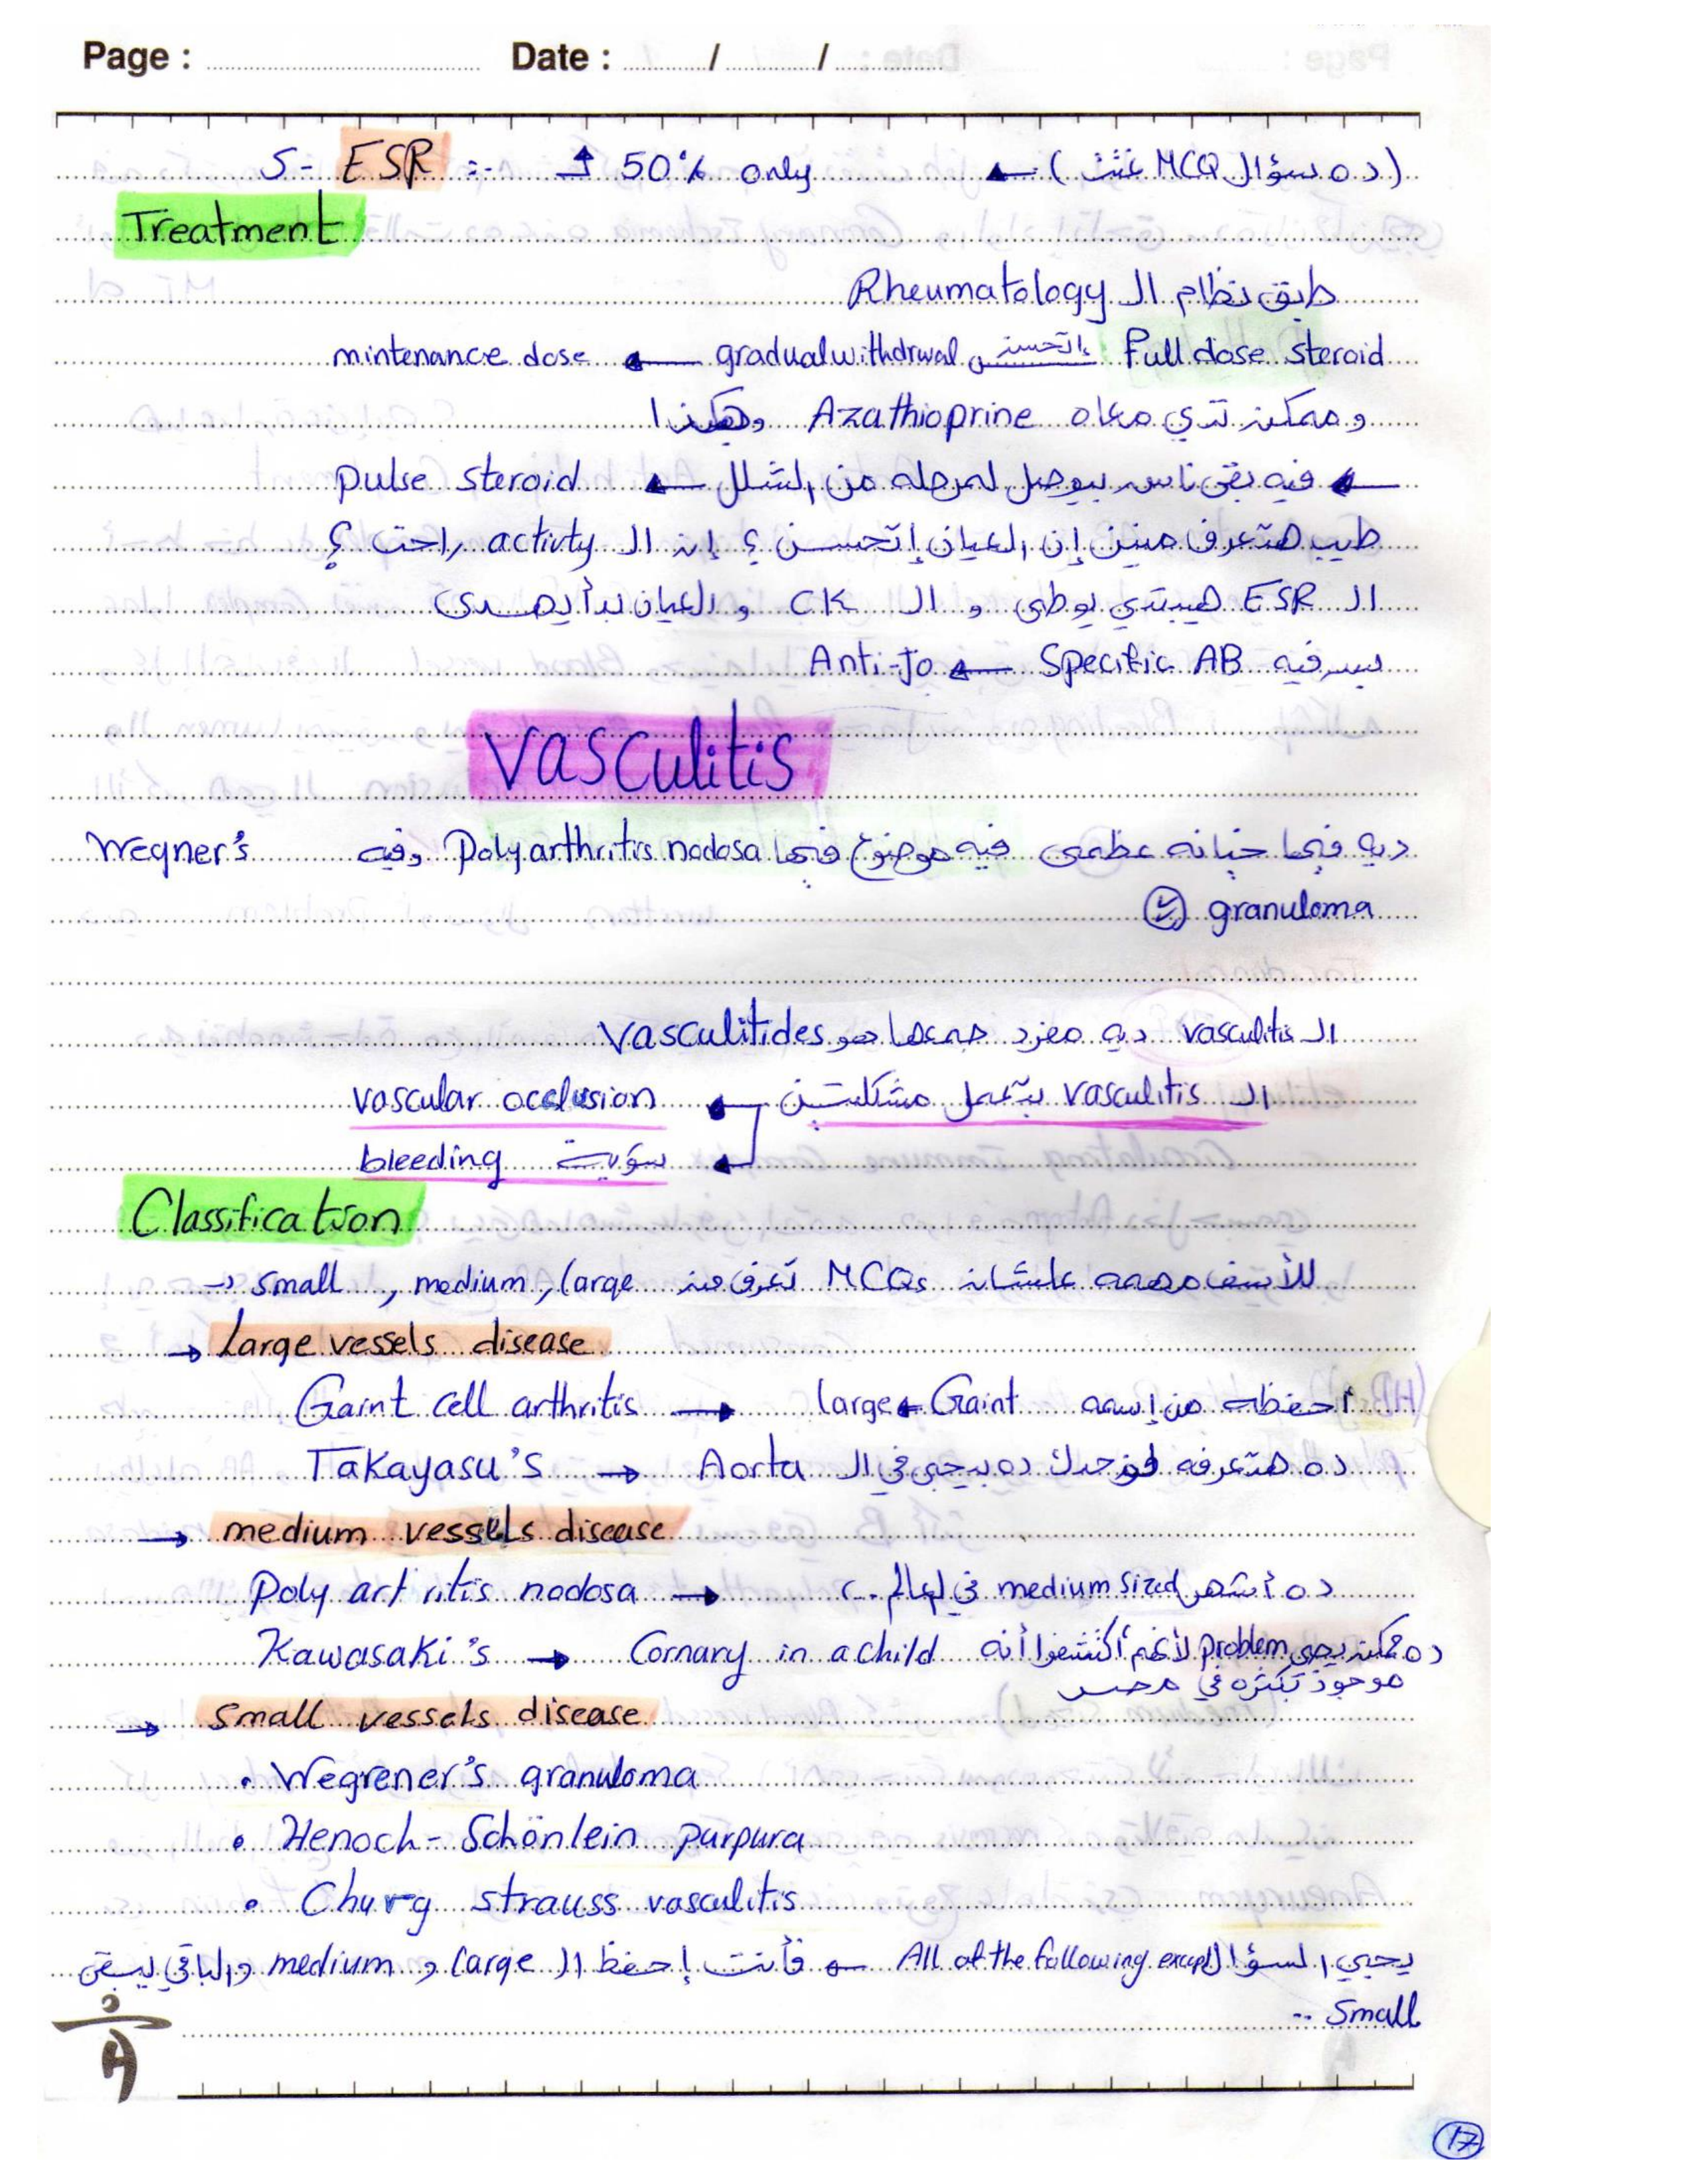 Page : Date : / /
5- ESR :- ↑ 50% only ← (ده سؤال MCQ غتت)
Treatment
طبق نظام ال Rheumatology
Full dose steroid إتحسن gradual withdrwal ← mintenance dose
وممكن تدي معاه Azathioprine وهكذا
← فيه بقى ناس بيوصل لمرحله من الشلل ← pulse steroid
طيب هتعرف منين إن العيان إتحسن؟ إن ال activty راحت؟
ال ESR هيبتدي يوطى و ال CK و العيان بدأ يهدى
بس فيه Specific AB ← Anti-Jo
Vasculitis
ديه فيها خيانه عظمى فيه موضوع فيها Polyarthritis nodosa وفيه Wegner's
granuloma
ال vasculitis ديه مفرد جمعها هو Vasculitides
ال vasculitis بتعمل مشكلتين ← vascular occlusion
← سوية bleeding
Classification
للأسف مهمه علشان MCQs تعرف من small , medium, large →
→ Large vessels disease
Gaint cell arthritis → large ← Gaint أحفظه من إسمه
Takayasu's → ده هتعرفه لوحدك ده بيجي في ال Aorta
→ medium vessels disease
Poly art ritis nodosa → ده أشهر medium sized في العالم ..
Kawasaki's → Cornary in a child ده ممكن يجي problem لأنهم أكتشفوا أنه
موجود بكثره في مصر
→ Small vessels disease
• Wegrener's granuloma
• Henoch- Schönlein purpura
• Churg strauss vasculitis
يجي السؤال All of the following except ← فأنت إحفظ ال large و medium والباقي يبقى
Small --
17